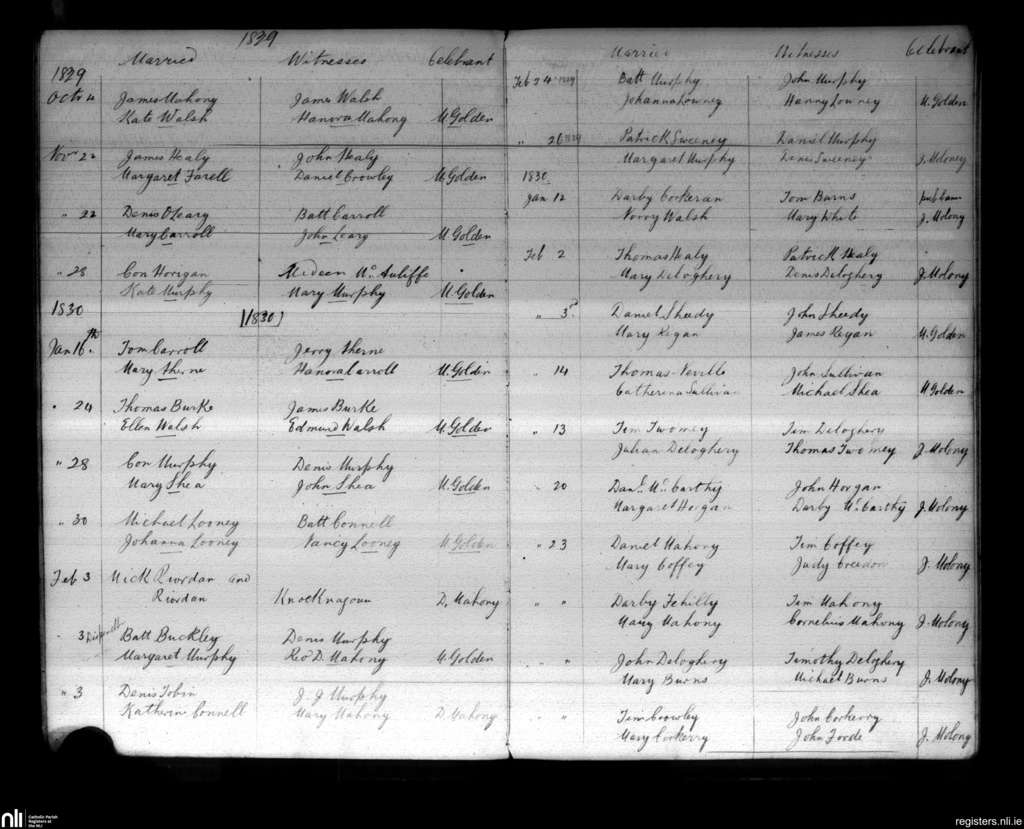 1829
Married Witnesses Celebrant
1829
Octr 4 James Mahony James Walsh
Kate Walsh Hanora Mahony M. Golden
Novr 22 James Healy John Healy
Margaret Farell Daniel Crowley M Golden
" 22 Denis O'Leary Batt Carroll
Mary Carroll John Leary M Golden
" 28 Con Horigan McAuliffe
Kate Murphy Mary Murphy M Golden
1830
[1830]
Jan 16th Tom Carroll Jerry Aherne
Mary Aherne Hanora Carroll M. Golden
" 24 Thomas Burke James Burke
Ellen Walsh Edmund Walsh M. Golden
" 28 Con Murphy Denis Murphy
Mary Shea John Shea M. Golden
" 30 Michael Looney Batt Connell
Johanna Looney Nancy Looney M. Golden
Feb 3 Mick Riordan and
Riordan Knocknagoun D. Mahony
" 3 Batt Buckley Denis Murphy
Margaret Murphy Revd D. Mahony M. Golden
" 3 Denis Tobin J. J Murphy
Katherin Connell Mary Mahony D. Mahony
Married Witnesses Celebrant
Feb 24 1829 Batt Murphy John Murphy
Johanna Lowney Hanny Lowney M. Golden
" 26 1829 Patrick Sweeney Daniel Murphy
Margaret Murphy Denis Sweeney J. Moloney
1830
Jan 12 Darby Corkeran Tom Burns
Norry Walsh Mary White J. Molony
Feb 2 Thomas Healy Patrick Healy
Mary Deloghery Denis Deloghery J. Molony
" 3 Daniel Sheedy John Sheedy
Mary Regan James Regan M. Golden
" 14 Thomas Neville John Sullivan
Catherena Sullivan Michael Shea M Golden
" 13 Tim Twomey Tim Deloghery
Julian Deloghery Thomas Twomey J. Molony
20 Danl. McCarthy John Horgan
Margaret Horgan Darby McCarthy J. Molony
" 23 Daniel Mahony Tim Coffey
Mary Coffey Judy Creedon J. Molony
" " Darby Fehilly Tim Mahony
Mary Mahony Cornelius Mahony J. Molony
" John Deloghery Timothy Deloghery
Mary Burns Michael Burns J. Molony
" " Tim Crowley John Corkerry
Mary Corkerry John Foode J. Molony
nli Catholic Parish
Registers at
the NLI
registers.nli.ie